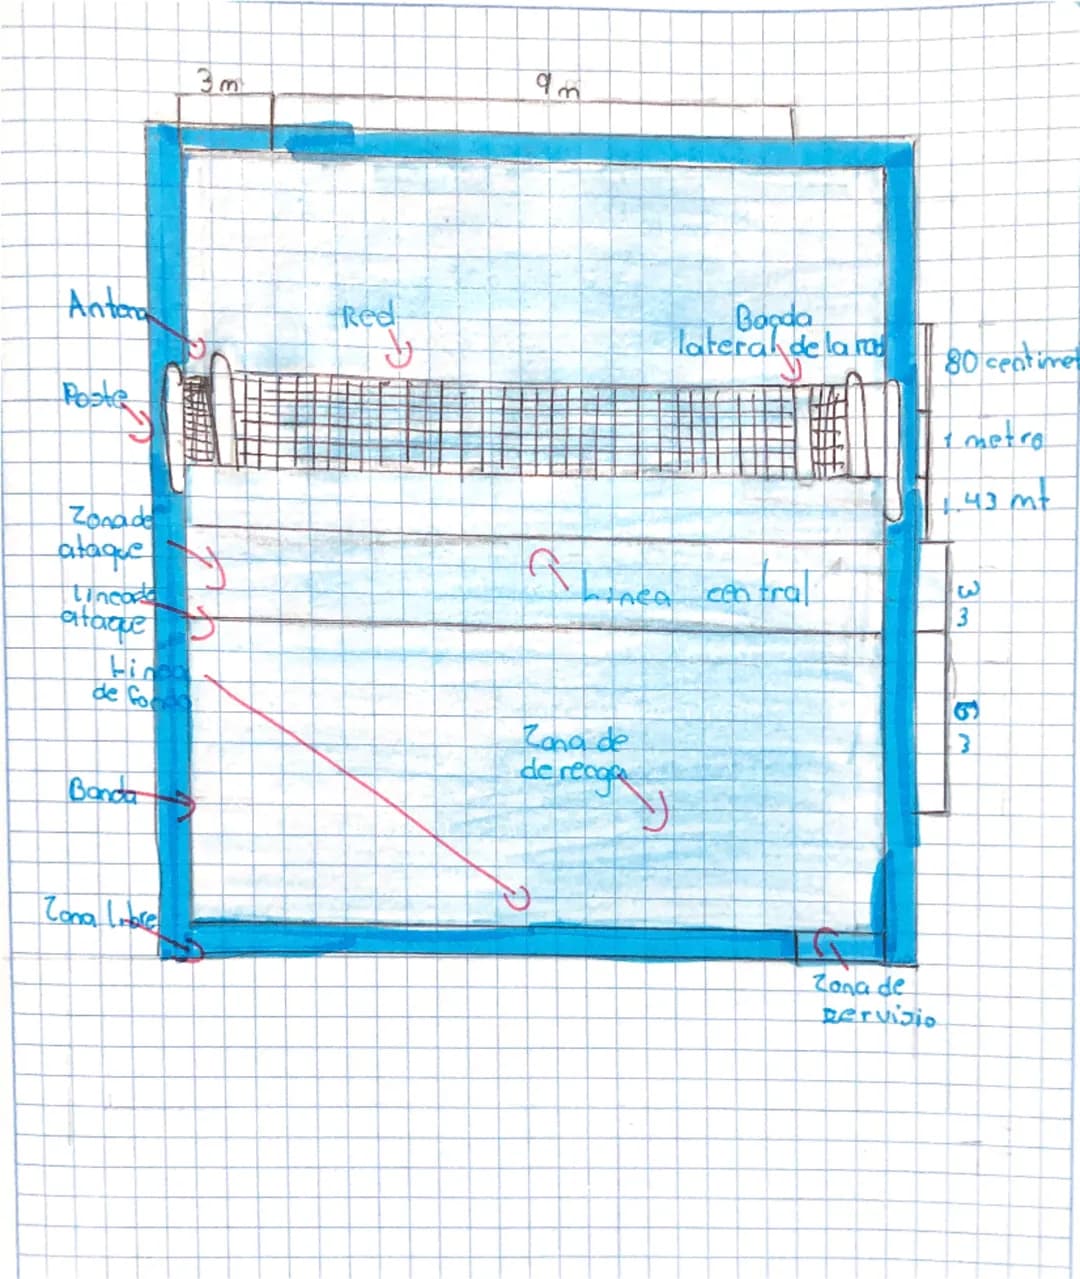 3m
9m
Antena
Red
Banda
lateral de la red
80 centimet
Poste
1 metro
1.43 mt
Zona de
ataque
Linea central
3
Linea de
ataque
Linea
de fondo
6
Zona de
de reaga
Banda
Zona libre
Zona de
servisio